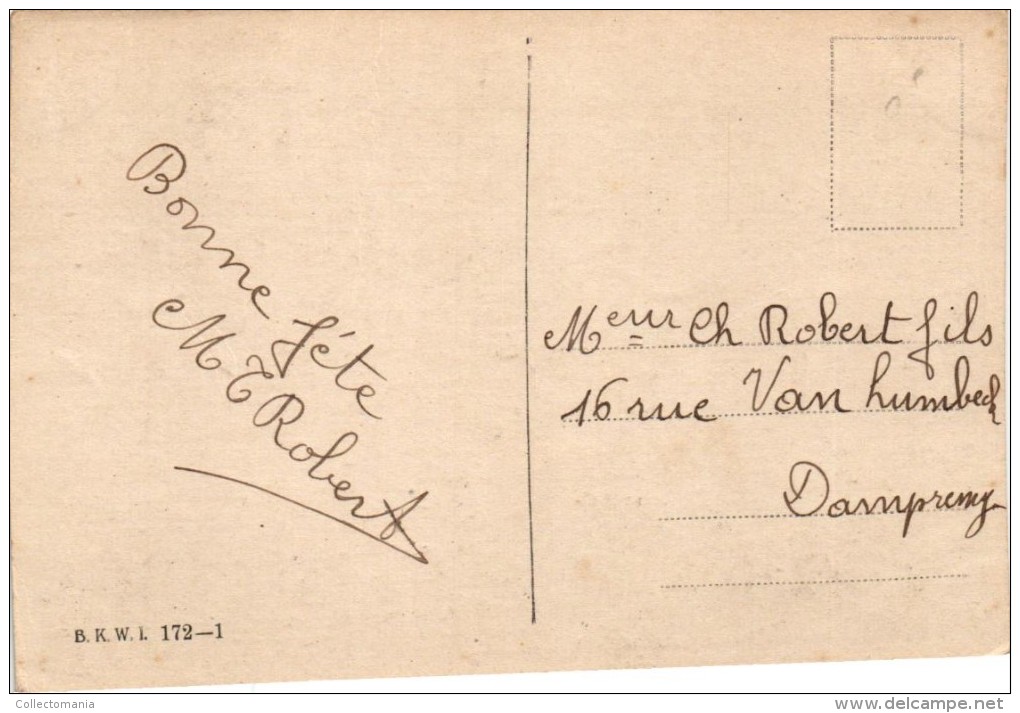 Bonne fête
M E Robert
B. K. W. I. 172—1
Meur Ch Robert fils
16 rue Van humbeck
Dampremy
Collectomania
www.delcampe.net